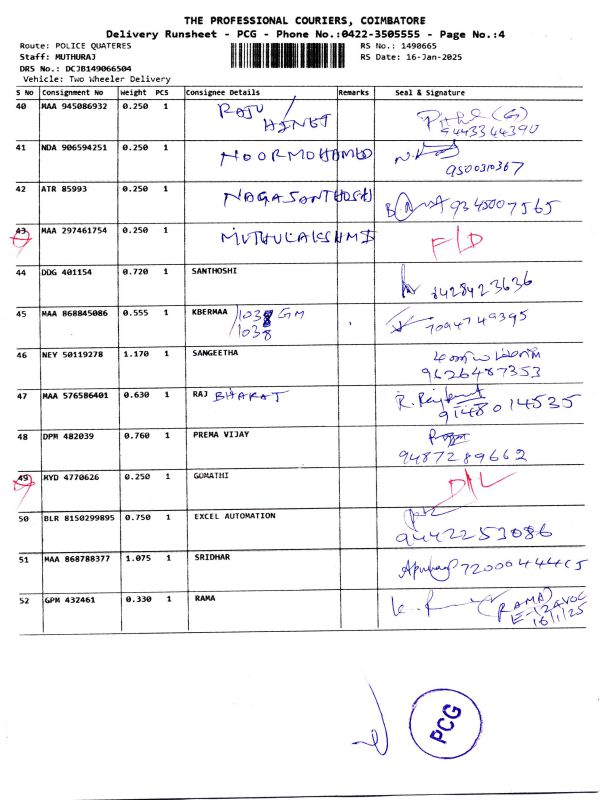 THE PROFESSIONAL COURIERS, COIMBATORE
Delivery Runsheet - PCG - Phone No.:0422-3505555 - Page No.:4
Route: POLICE QUATERES RS No.: 1490665
Staff: MUTHURAJ RS Date: 16-Jan-2025
DRS No.: DCJB149066504
Vehicle: Two Wheeler Delivery
S No Consignment No Weight PCS Consignee Details Remarks Seal & Signature
40 MAA 945086932 0.250 1 RAJU /
9443344390
41 NDA 906594251 0.250 1 NOORMOHAMED
9500310367
42 ATR 85993 0.250 1 NAGASANTHOSH 9345007565
43 MAA 297461754 0.250 1 MUTHULAKSHMI F/D
44 DDG 401154 0.720 1 SANTHOSHI
8428423636
45 MAA 868845086 0.555 1 KBERMAA /1038 GM
1038 7094749395
46 NEY 50119278 1.170 1 SANGEETHA
9626487353
47 MAA 576586401 0.630 1 RAJ BHARAT
9148014535
48 DPM 482039 0.760 1 PREMA VIJAY
9487289662
49 MYD 4770626 0.250 1 GOMATHI D/L
50 BLR 8150299895 0.750 1 EXCEL AUTOMATION
9442253086
51 MAA 868788377 1.075 1 SRIDHAR
52 GPM 432461 0.330 1 RAMA (RAMA)
16/1/25
PCG